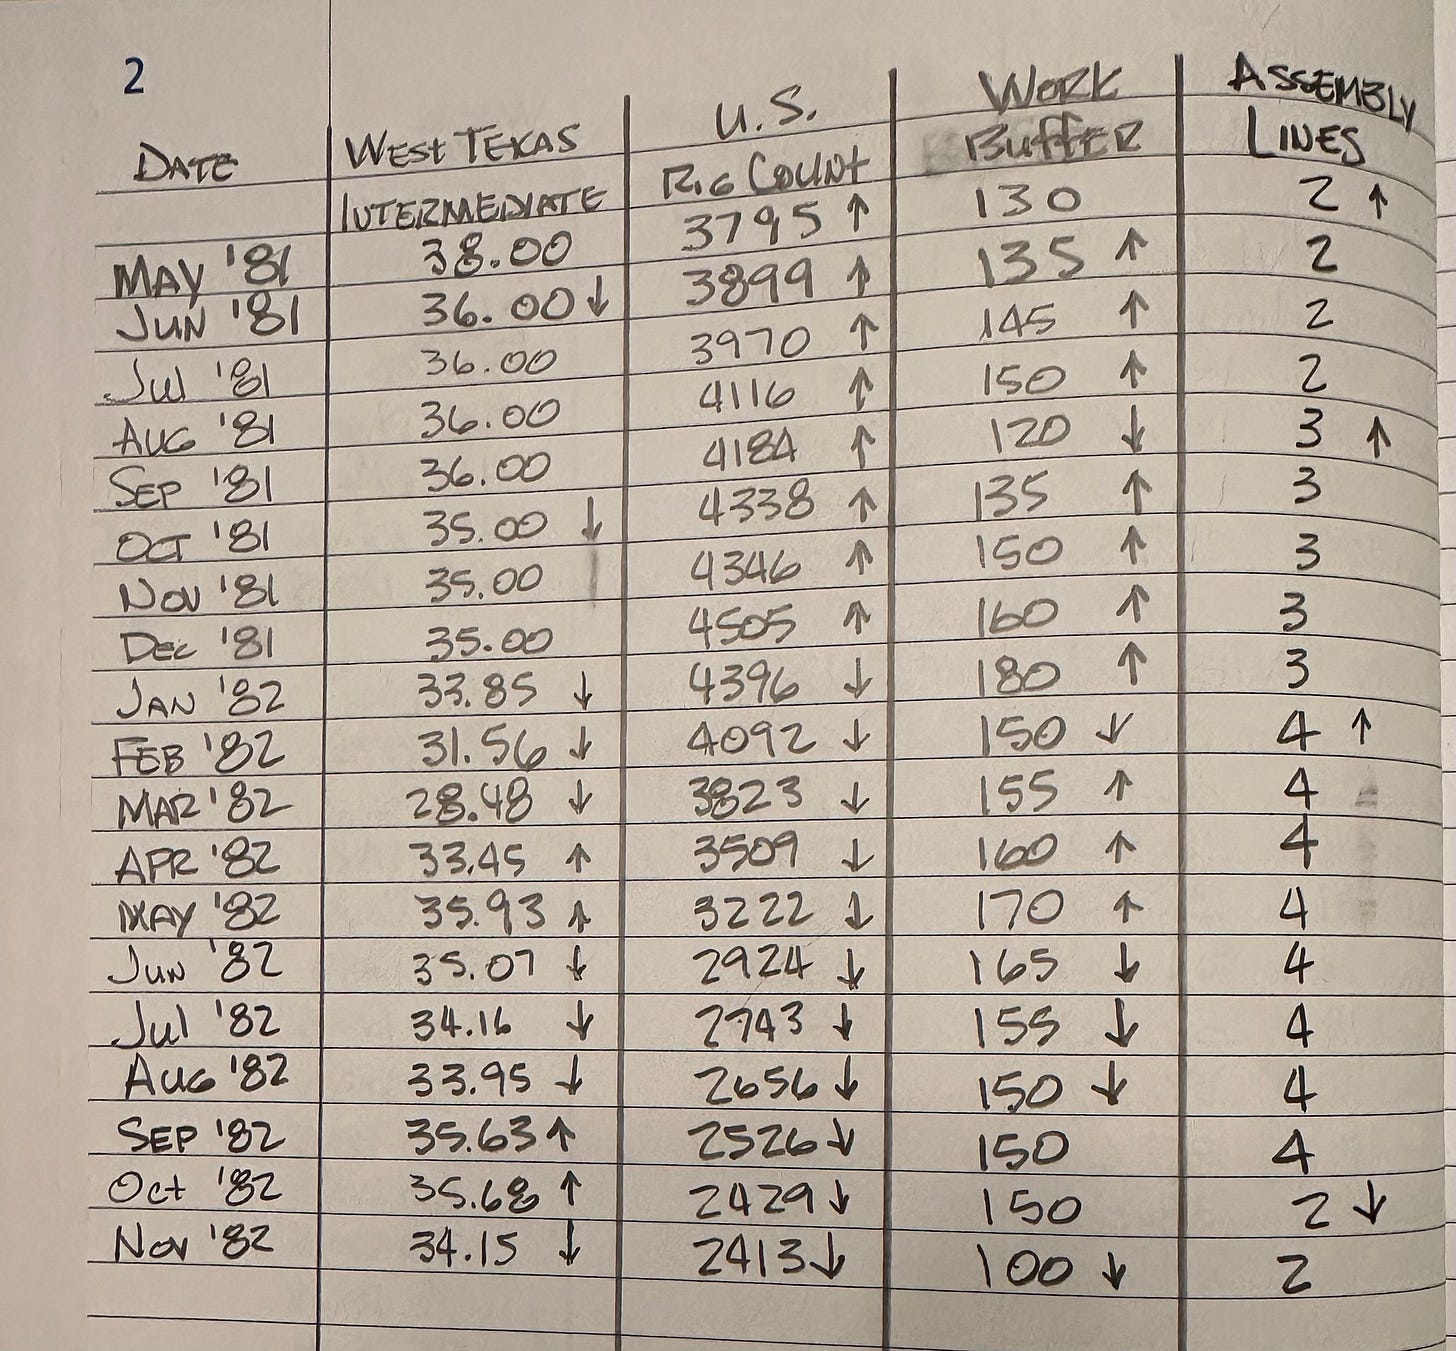 2
DATE WEST TEXAS INTERMEDIATE U.S. RIG COUNT WORK BUFFER ASSEMBLY LINES
MAY '81 38.00 3795 ↑ 130 2 ↑
JUN '81 36.00 ↓ 3899 ↑ 135 ↑ 2
Jul '81 36.00 3970 ↑ 145 ↑ 2
AUG '81 36.00 4116 ↑ 150 ↑ 2
SEP '81 36.00 4184 ↑ 120 ↓ 3 ↑
OCT '81 35.00 ↓ 4338 ↑ 135 ↑ 3
NOV '81 35.00 4346 ↑ 150 ↑ 3
DEC '81 35.00 4505 ↑ 160 ↑ 3
JAN '82 33.85 ↓ 4396 ↓ 180 ↑ 3
FEB '82 31.56 ↓ 4092 ↓ 150 ↓ 4 ↑
MAR '82 28.48 ↓ 3823 ↓ 155 ↑ 4
APR '82 33.45 ↑ 3509 ↓ 160 ↑ 4
MAY '82 35.93 ↑ 3222 ↓ 170 ↑ 4
JUN '82 35.07 ↓ 2924 ↓ 165 ↓ 4
Jul '82 34.16 ↓ 2743 ↓ 155 ↓ 4
AUG '82 33.95 ↓ 2656 ↓ 150 ↓ 4
SEP '82 35.63 ↑ 2526 ↓ 150 4
Oct '82 35.68 ↑ 2429 ↓ 150 2 ↓
Nov '82 34.15 ↓ 2413 ↓ 100 ↓ 2